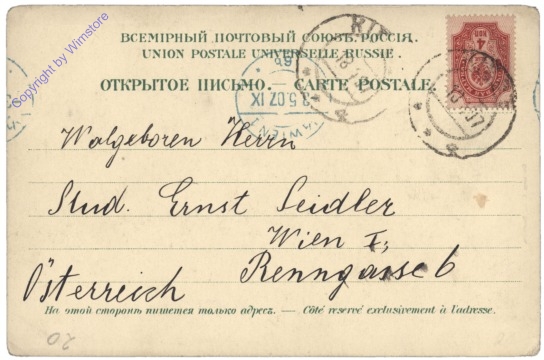 ВСЕМІРНЫЙ ПОЧТОВЫЙ СОЮЗЪ. РОССІЯ.
UNION POSTALE UNIVERSELLE RUSSIE.
ОТКРЫТОЕ ПИСЬМО. — CARTE POSTALE.
Copyright by Wimstore
4 КОП
WIEN
3.5.07.IX
Walgeboren Herrn
Stud. Ernst Seidler
Wien I,
Renngasse 6
Österreich
На этой сторонѣ пишется только адресъ. — Côté reservé exclusivement à l'adresse.
20